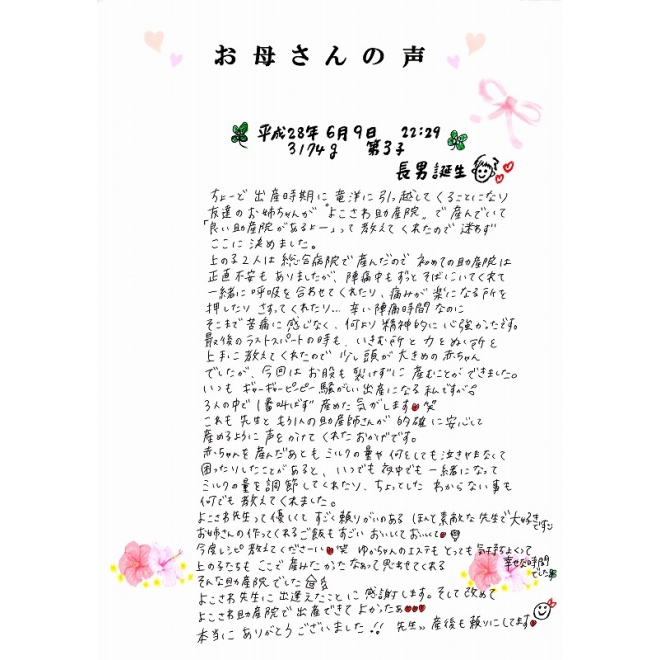 お母さんの声
平成28年6月9日 22:29
3174g 第3子
長男誕生
ちょーど 出産時期に 竜洋に引っ越してくることになり
友達のお姉ちゃんが "よこさわ助産院" で産んでいて
「良い助産院があるよー」って教えてくれたので 迷わず
ここに決めました。
上の子2人は 総合病院で産んだので 初めての助産院は
正直不安もありましたが、陣痛中もずっとそばにいてくれて
一緒に呼吸を合わせてくれたり、痛みが楽になる所を
押したり さすってくれたり… 辛い陣痛時間なのに
そこまで苦痛に感じなく、何より精神的に心強かったです。
最後のラストスパートの時も、いきむ所と力をぬく所を
上手に教えてくれたので 少し頭が大きめの赤ちゃん
でしたが、今回はお股も裂けずに産むことができました。
いつも ギャーギャーピーピー騒がしい出産になる私ですが
3人の中で1番叫ばず 産めた気がします 笑
これも先生ともう1人の助産師さんが 的確に安心して
産めるように声をかけてくれたおかげです。
赤ちゃんを産んだあとも ミルクの量や何をしても泣きやまなくて
困ったりしたことがあると、いつでも夜中でも一緒になって
ミルクの量を調節してくれたり、ちょっとした わからない事も
何でも教えてくれました。
よこさわ先生って優しくて すごく頼りがいのある ほんと素敵な先生で大好きです
お姉さんの作ってくれるご飯もすごいおいしくておいしくて
今度レシピ教えてください 笑 ゆかちゃんのエステもとっても気持ちよくて
幸せな時間でした
上の子たちも ここで産みたかったなぁって思わせてくれる
そんな助産院でした
よこさわ先生に出逢えたことに感謝します。そして改めて
よこさわ助産院で出産できて よかったぁ
本当にありがとうございました!! 先生 産後も頼りにしてます